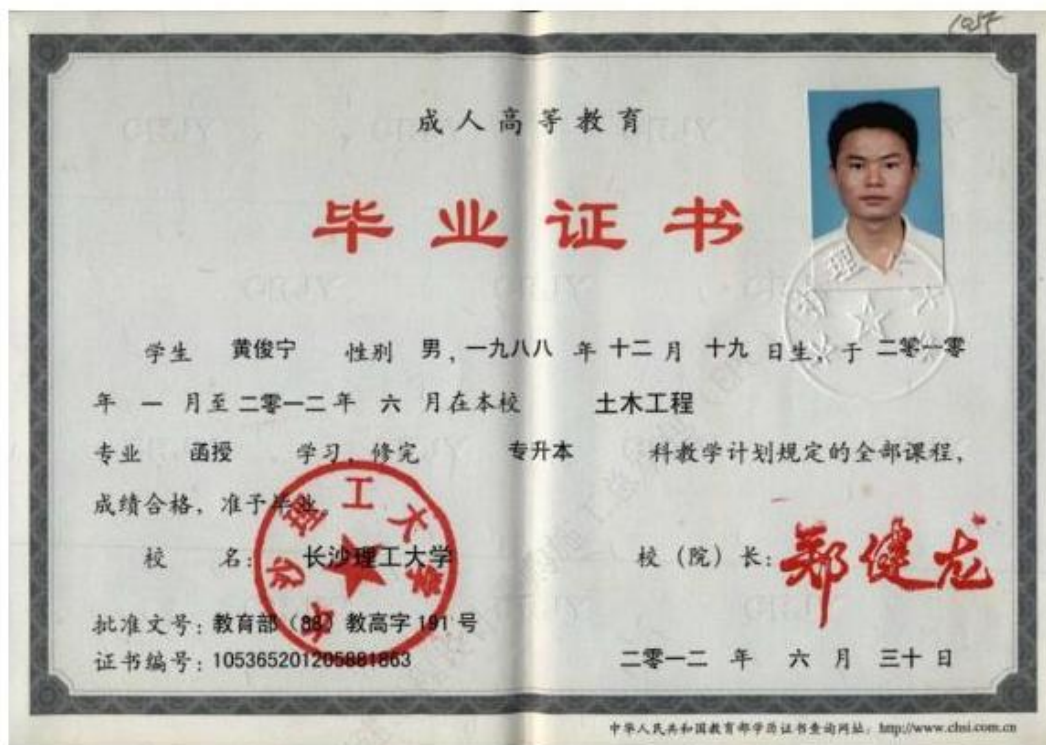 1054
成人高等教育
毕业证书
学生 黄俊宁 性别 男，一九八八 年 十二 月 十九 日生，于 二零一零
年 一 月至 二零一二 年 六 月在本校 土木工程
专业 函授 学习，修完 专升本 科教学计划规定的全部课程，
成绩合格，准予毕业。
校 名： 长沙理工大学 校（院）长：郑健龙
批准文号：教育部（88）教高字 191 号
证书编号：105365201205881863 二零一二 年 六 月 三十 日
长沙理工大学
中华人民共和国教育部学历证书查询网址：http://www.chsi.com.cn